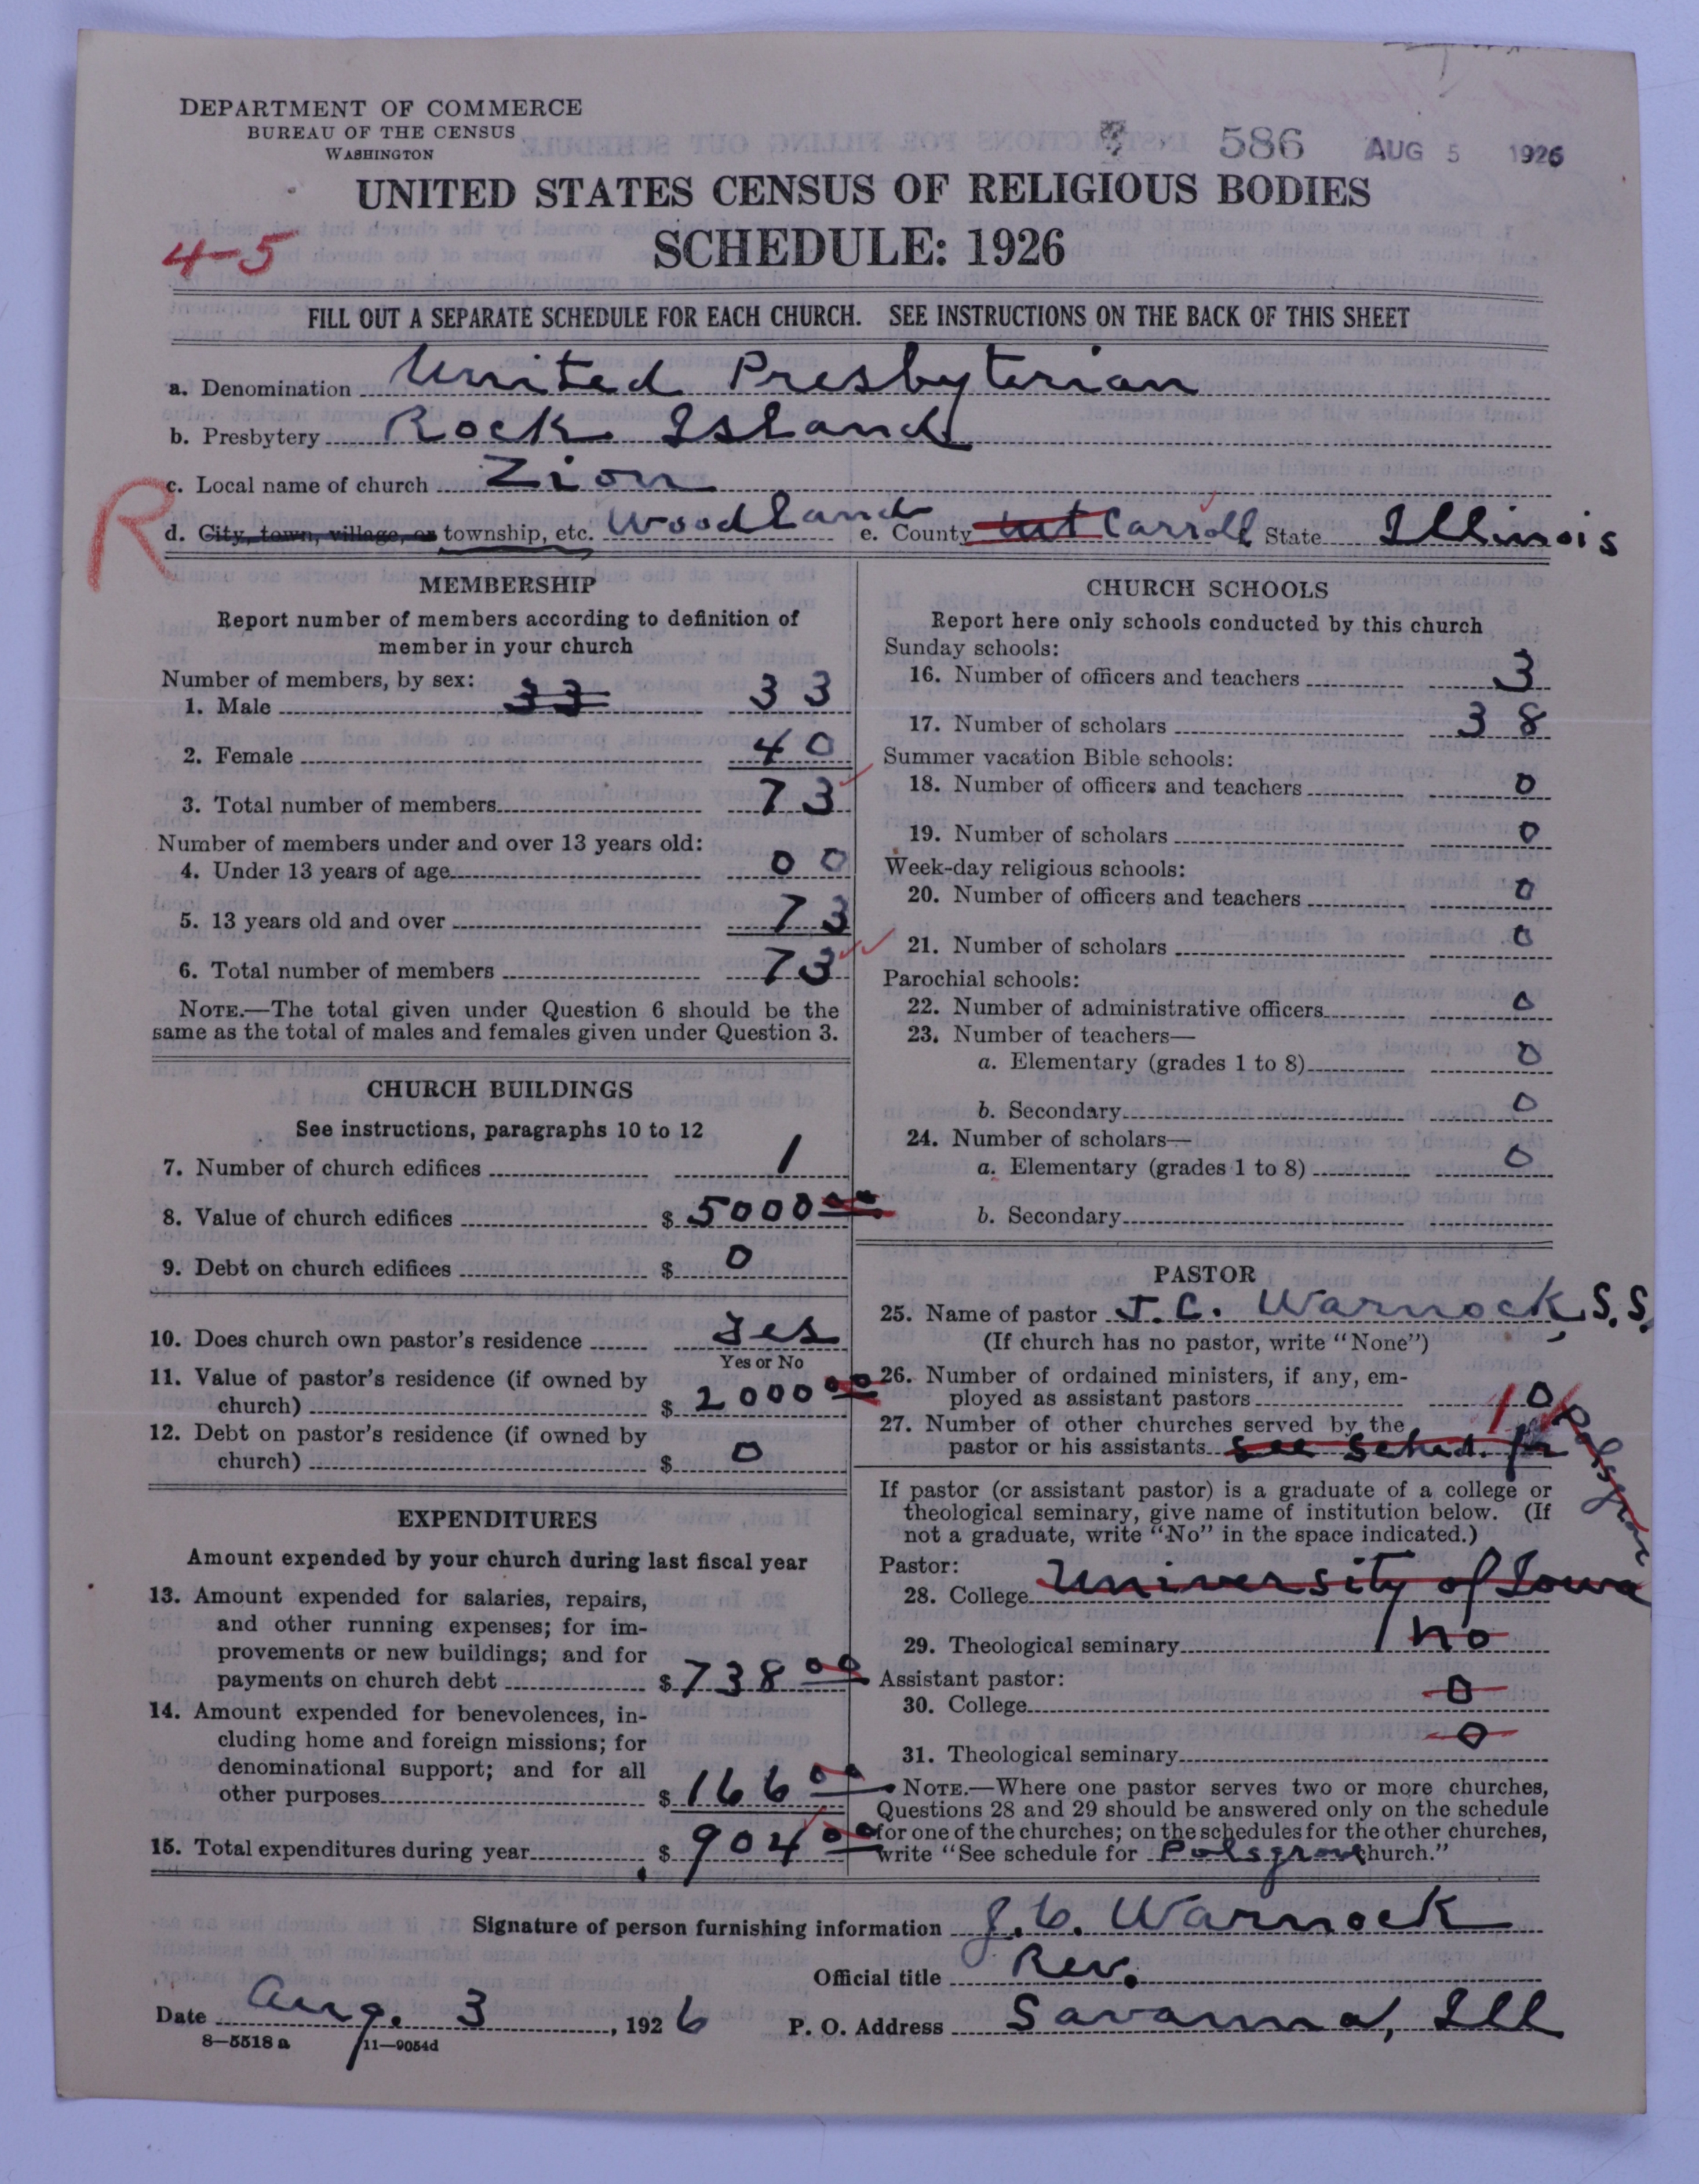 DEPARTMENT OF COMMERCE
BUREAU OF THE CENSUS
WASHINGTON
586 AUG 5 1926
UNITED STATES CENSUS OF RELIGIOUS BODIES
4-5
SCHEDULE: 1926
FILL OUT A SEPARATE SCHEDULE FOR EACH CHURCH. SEE INSTRUCTIONS ON THE BACK OF THIS SHEET
a. Denomination United Presbyterian
b. Presbytery Rock Island
c. Local name of church Zion
R
d. City, town, village, or township, etc. Woodland e. County Mt Carroll State Illinois
MEMBERSHIP
Report number of members according to definition of
member in your church
Number of members, by sex:
1. Male 33 33
2. Female 40
3. Total number of members 73
Number of members under and over 13 years old:
4. Under 13 years of age 00
5. 13 years old and over 73
6. Total number of members 73
NOTE.—The total given under Question 6 should be the
same as the total of males and females given under Question 3.
CHURCH BUILDINGS
See instructions, paragraphs 10 to 12
7. Number of church edifices 1
8. Value of church edifices $ 5000 00
9. Debt on church edifices $ 0
10. Does church own pastor's residence Yes
Yes or No
11. Value of pastor's residence (if owned by
church) $ 2000 00
12. Debt on pastor's residence (if owned by
church) $ 0
EXPENDITURES
Amount expended by your church during last fiscal year
13. Amount expended for salaries, repairs,
and other running expenses; for im-
provements or new buildings; and for
payments on church debt $ 738 00
14. Amount expended for benevolences, in-
cluding home and foreign missions; for
denominational support; and for all
other purposes $ 166 00
15. Total expenditures during year $ 904 00
CHURCH SCHOOLS
Report here only schools conducted by this church
Sunday schools:
16. Number of officers and teachers 3
17. Number of scholars 38
Summer vacation Bible schools:
18. Number of officers and teachers 0
19. Number of scholars 0
Week-day religious schools:
20. Number of officers and teachers 0
21. Number of scholars 0
Parochial schools:
22. Number of administrative officers 0
23. Number of teachers—
a. Elementary (grades 1 to 8) 0
b. Secondary 0
24. Number of scholars—
a. Elementary (grades 1 to 8) 0
b. Secondary
PASTOR
25. Name of pastor J. C. Warnock, S. S.
(If church has no pastor, write "None")
26. Number of ordained ministers, if any, em-
ployed as assistant pastors 0
27. Number of other churches served by the 1
pastor or his assistants see sched. for Polsgrove
If pastor (or assistant pastor) is a graduate of a college or
theological seminary, give name of institution below. (If
not a graduate, write "No" in the space indicated.)
Pastor:
28. College University of Iowa
29. Theological seminary no
Assistant pastor:
30. College 0
31. Theological seminary 0
NOTE.—Where one pastor serves two or more churches,
Questions 28 and 29 should be answered only on the schedule
for one of the churches; on the schedules for the other churches,
write "See schedule for Polsgrove church."
Signature of person furnishing information J. C. Warnock
Official title Rev.
Date Aug. 3, 1926 P. O. Address Savanna, Ill
8—5518 a 11—9054d